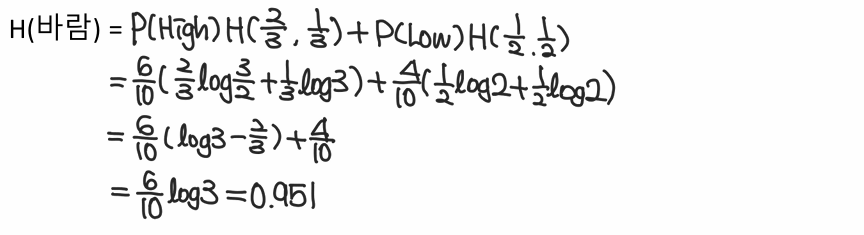 H(바람) = P(High)H(2/3, 1/3)+P(Low)H(1/2.1/2)
=6/10(2/3log3/2+1/3log3)+4/10(1/2log2+1/2log2)
=6/10(log3-2/3)+4/10
=6/10log3=0.951